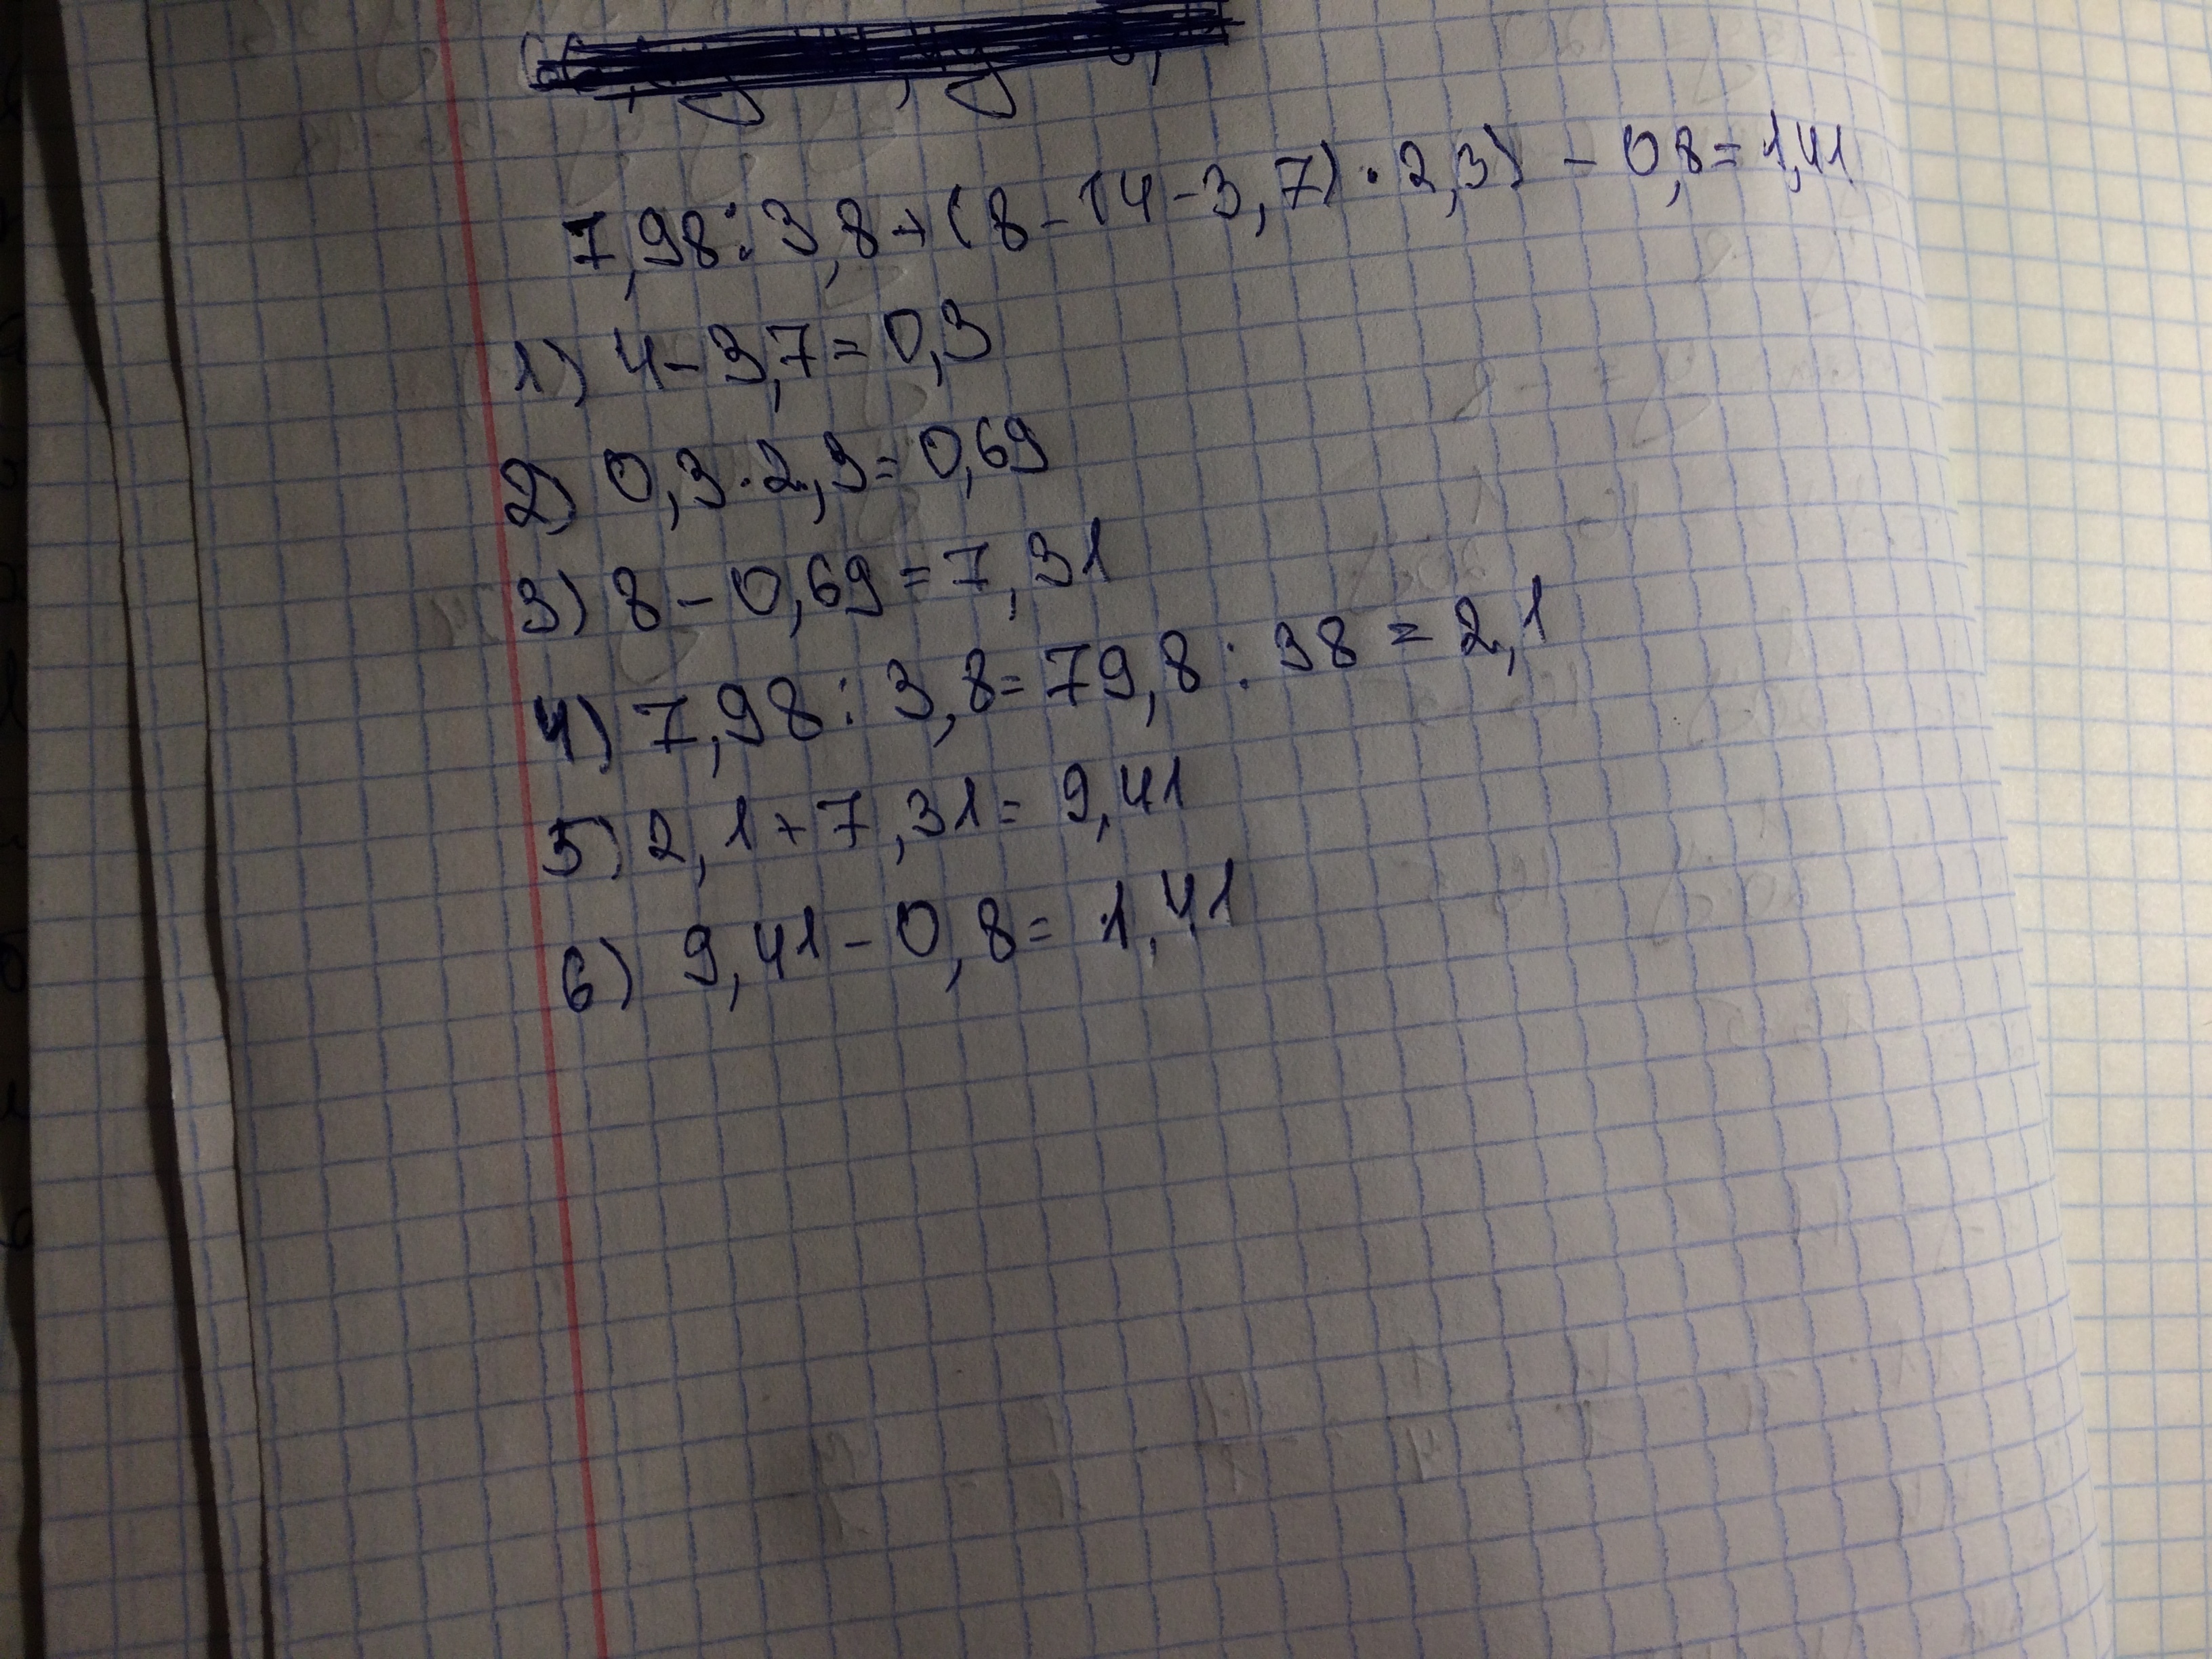 7,98 : 3,8 + (8 - (4 - 3,7) · 2,3) - 0,8 = 1,41
1) 4 - 3,7 = 0,3
2) 0,3 · 2,3 = 0,69
3) 8 - 0,69 = 7,31
4) 7,98 : 3,8 = 79,8 : 38 = 2,1
5) 2,1 + 7,31 = 9,41
6) 9,41 - 0,8 = 1,41